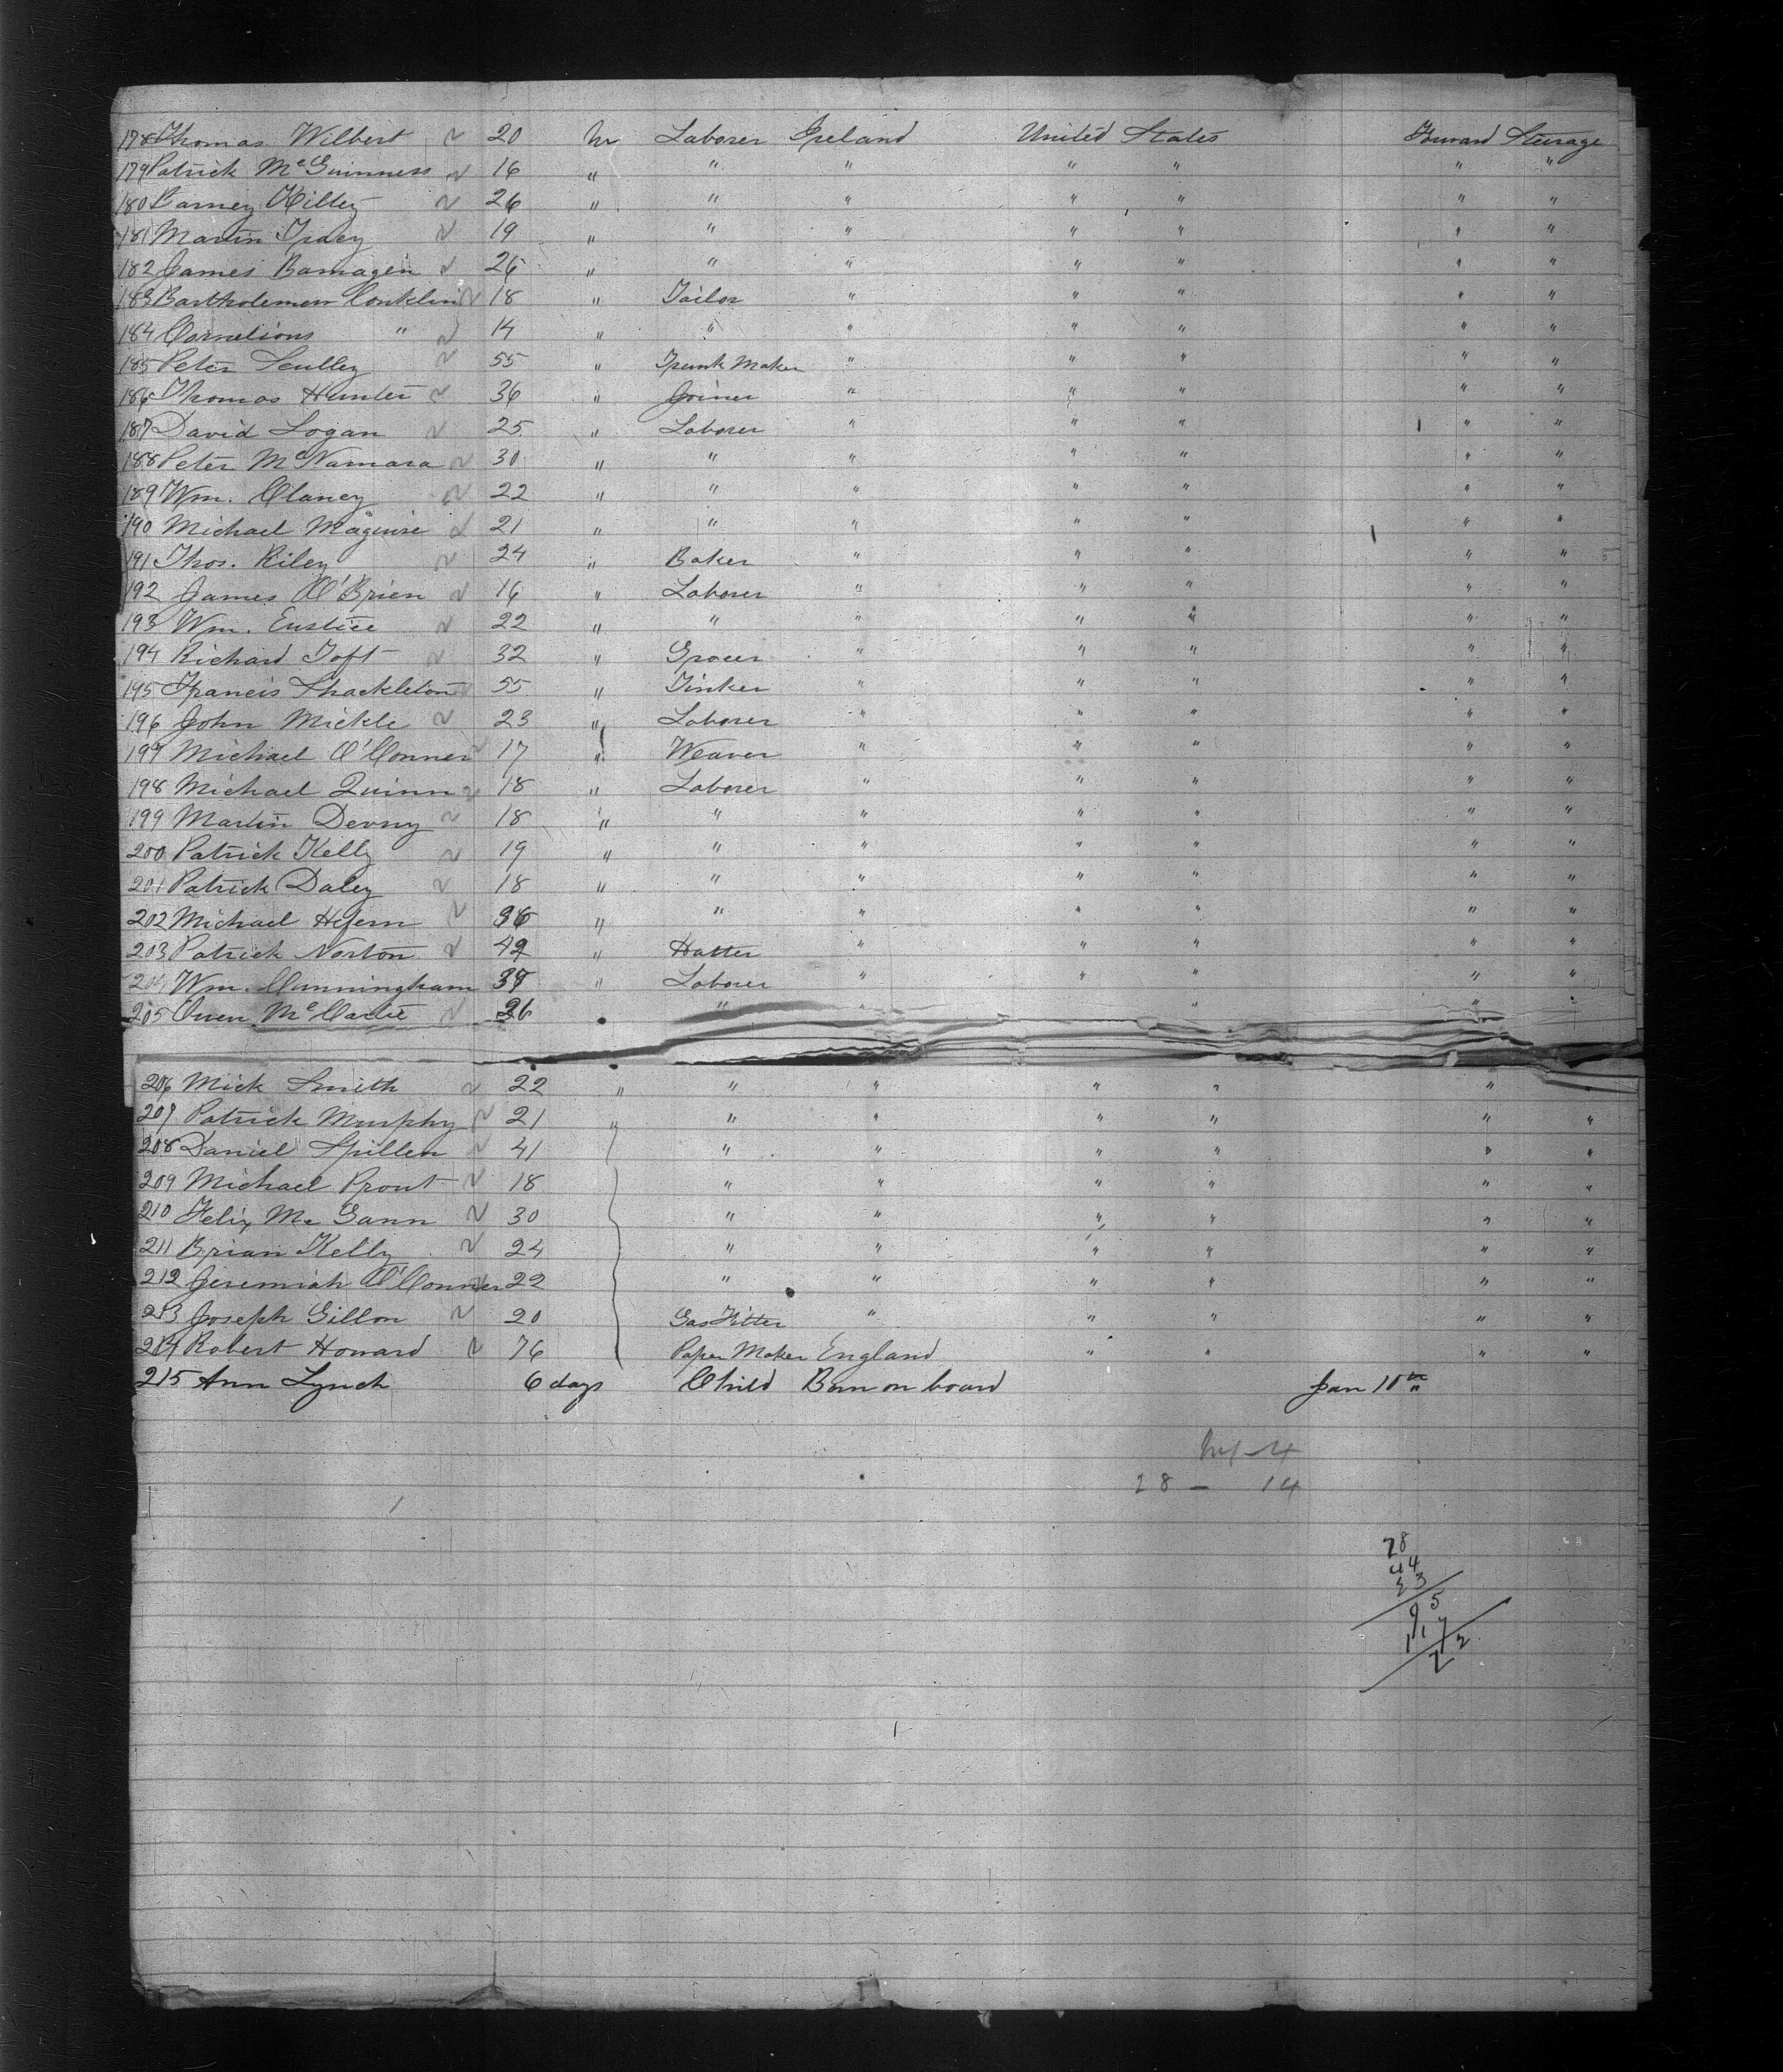 178 Thomas Wilbert 20 m Laborer Ireland United States Forward Steerage
179 Patrick McGuinness 16 " " " " " "
180 Barney Killey 26 " " " " " " "
181 Martin Tracy 19 " " " " " " "
182 James Bamagen 26 " " " " " " "
183 Bartholemew Conklin 18 " Tailor " " " " "
184 Cornelious " 14 " " " " " " "
185 Peter Sculley 55 " Trunk Maker " " " " "
186 Thomas Hunter 36 " Joiner " " " " "
187 David Logan 25 " Laborer " " " " "
188 Peter McNamara 30 " " " " " " "
189 Wm. Clancy 22 " " " " " " "
190 Michael Maguire 21 " " " " " " "
191 Thos. Riley 24 " Baker " " " " "
192 James O'Brien 16 " Laborer " " " " "
193 Wm. Eustice 22 " " " " " " "
194 Richard Toft 32 " Grocer " " " " "
195 Francis Shackleton 55 " Tinker " " " " "
196 John Mickle 23 " Laborer " " " " "
197 Michael O'Conner 17 " Weaver " " " " "
198 Michael Quinn 18 " Laborer " " " " "
199 Martin Devny 18 " " " " " " "
200 Patrick Kelly 19 " " " " " " "
201 Patrick Daley 18 " " " " " " "
202 Michael Hefern 36 " " " " " " "
203 Patrick Norton 42 " Hatter " " " " "
204 Wm. Cunningham " Laborer " " " " "
205 Owen McCarte 26 " " " "
206 Mick Smith 22 " " " " " " "
207 Patrick Murphy 21 " " " " " " "
208 Daniel Spillen 41 " " " " " "
209 Michael Prout 18 " " " " " "
210 Felix Mc Gann 30 " " " " " "
211 Brian Kelly 24 " " " " " "
212 Jeremiah O'Conner 22 " " " " " "
213 Joseph Gillon 20 Gas Fitter " " " " "
214 Robert Howard 76 Paper Maker England " " " "
215 Ann Lynch 6 days Child Born on board Jan 10th
28 - 14
78
44
53
95
117
22